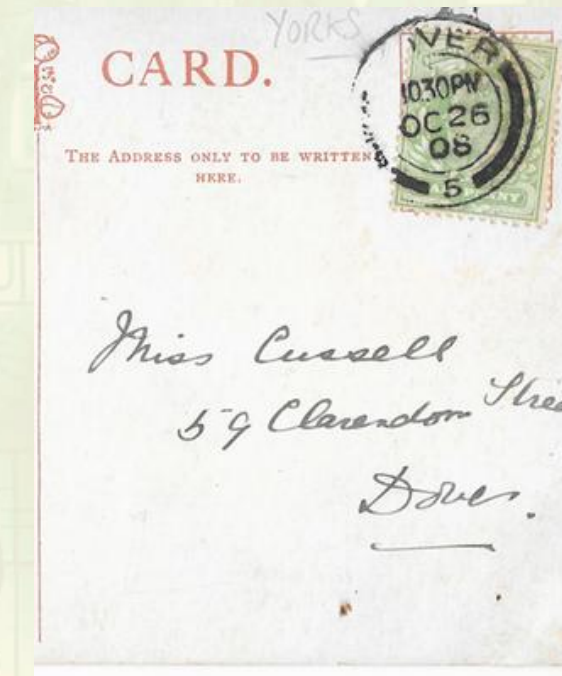 YORKS
CARD.
THE ADDRESS ONLY TO BE WRITTEN
HERE.
OVER
10.30PM
OC 26
08
5
Miss Cussell
59 Clarendon Stree
Dover.